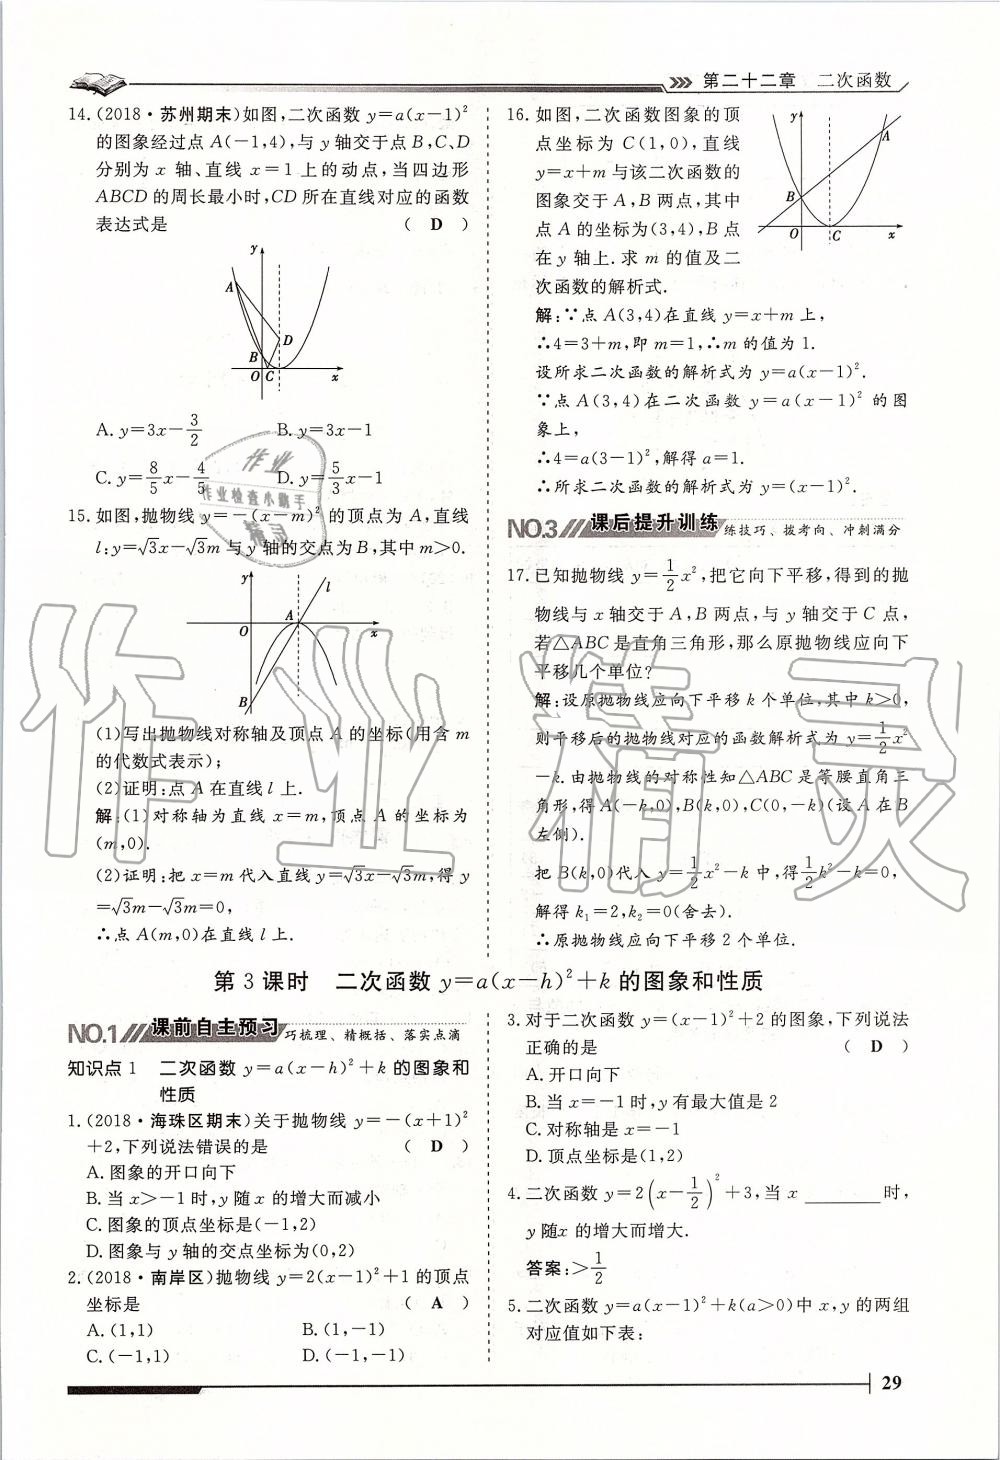 第二十二章 二次函数
14.(2018·苏州期末)如图,二次函数 y=a(x-1)²
的图象经过点 A(-1,4),与 y 轴交于点 B,C、D
分别为 x 轴、直线 x=1 上的动点,当四边形
ABCD 的周长最小时,CD 所在直线对应的函数
表达式是 ( D )
y
A
D
B
O C x
A. y=3x-3/2 B. y=3x-1
C. y=8/5x-4/5 D. y=5/3x-1
15. 如图,抛物线 y=-(x-m)² 的顶点为 A,直线
l:y=√3x-√3m 与 y 轴的交点为 B,其中 m>0.
y l
A
O x
B
(1)写出抛物线对称轴及顶点 A 的坐标(用含 m
的代数式表示);
(2)证明:点 A 在直线 l 上.
解:(1)对称轴为直线 x=m,顶点 A 的坐标为
(m,0).
(2)证明:把 x=m 代入直线 y=√3x-√3m,得 y
=√3m-√3m=0,
∴点 A(m,0)在直线 l 上.
16. 如图,二次函数图象的顶
点坐标为 C(1,0),直线
y=x+m 与该二次函数的
图象交于 A,B 两点,其中
点 A 的坐标为(3,4),B 点
在 y 轴上.求 m 的值及二
次函数的解析式.
y
A
B
O C x
解:∵点 A(3,4)在直线 y=x+m 上,
∴4=3+m,即 m=1,∴m 的值为 1.
设所求二次函数的解析式为 y=a(x-1)².
∵点 A(3,4)在二次函数 y=a(x-1)² 的图
象上,
∴4=a(3-1)²,解得 a=1.
∴所求二次函数的解析式为 y=(x-1)².
NO.3 课后提升训练 练技巧、拔考向、冲刺满分
17. 已知抛物线 y=1/2x²,把它向下平移,得到的抛
物线与 x 轴交于 A,B 两点,与 y 轴交于 C 点,
若△ABC 是直角三角形,那么原抛物线应向下
平移几个单位?
解:设原抛物线应向下平移 k 个单位,其中 k>0,
则平移后的抛物线对应的函数解析式为 y=1/2x²
-k.由抛物线的对称性知△ABC 是等腰直角三
角形,得 A(-k,0),B(k,0),C(0,-k)(设 A 在 B
左侧).
把 B(k,0)代入 y=1/2x²-k 中,得1/2k²-k=0,
解得 k₁=2,k₂=0(舍去).
∴原抛物线应向下平移 2 个单位.
第 3 课时 二次函数 y=a(x-h)²+k 的图象和性质
NO.1 课前自主预习 巧梳理、精概括、落实点滴
知识点 1 二次函数 y=a(x-h)²+k 的图象和
性质
1.(2018·海珠区期末)关于抛物线 y=-(x+1)²
+2,下列说法错误的是 ( D )
A. 图象的开口向下
B. 当 x>-1 时,y 随 x 的增大而减小
C. 图象的顶点坐标是(-1,2)
D. 图象与 y 轴的交点坐标为(0,2)
2.(2018·南岸区)抛物线 y=2(x-1)²+1 的顶点
坐标是 ( A )
A. (1,1) B. (1,-1)
C. (-1,1) D. (-1,-1)
3. 对于二次函数 y=(x-1)²+2 的图象,下列说法
正确的是 ( D )
A. 开口向下
B. 当 x=-1 时,y 有最大值是 2
C. 对称轴是 x=-1
D. 顶点坐标是(1,2)
4. 二次函数 y=2(x-1/2)²+3,当 x ________ 时,
y 随x 的增大而增大.
答案:>1/2
5. 二次函数 y=a(x-1)²+k(a>0)中 x,y 的两组
对应值如下表:
29
作业精灵
作业
作业检查小助手